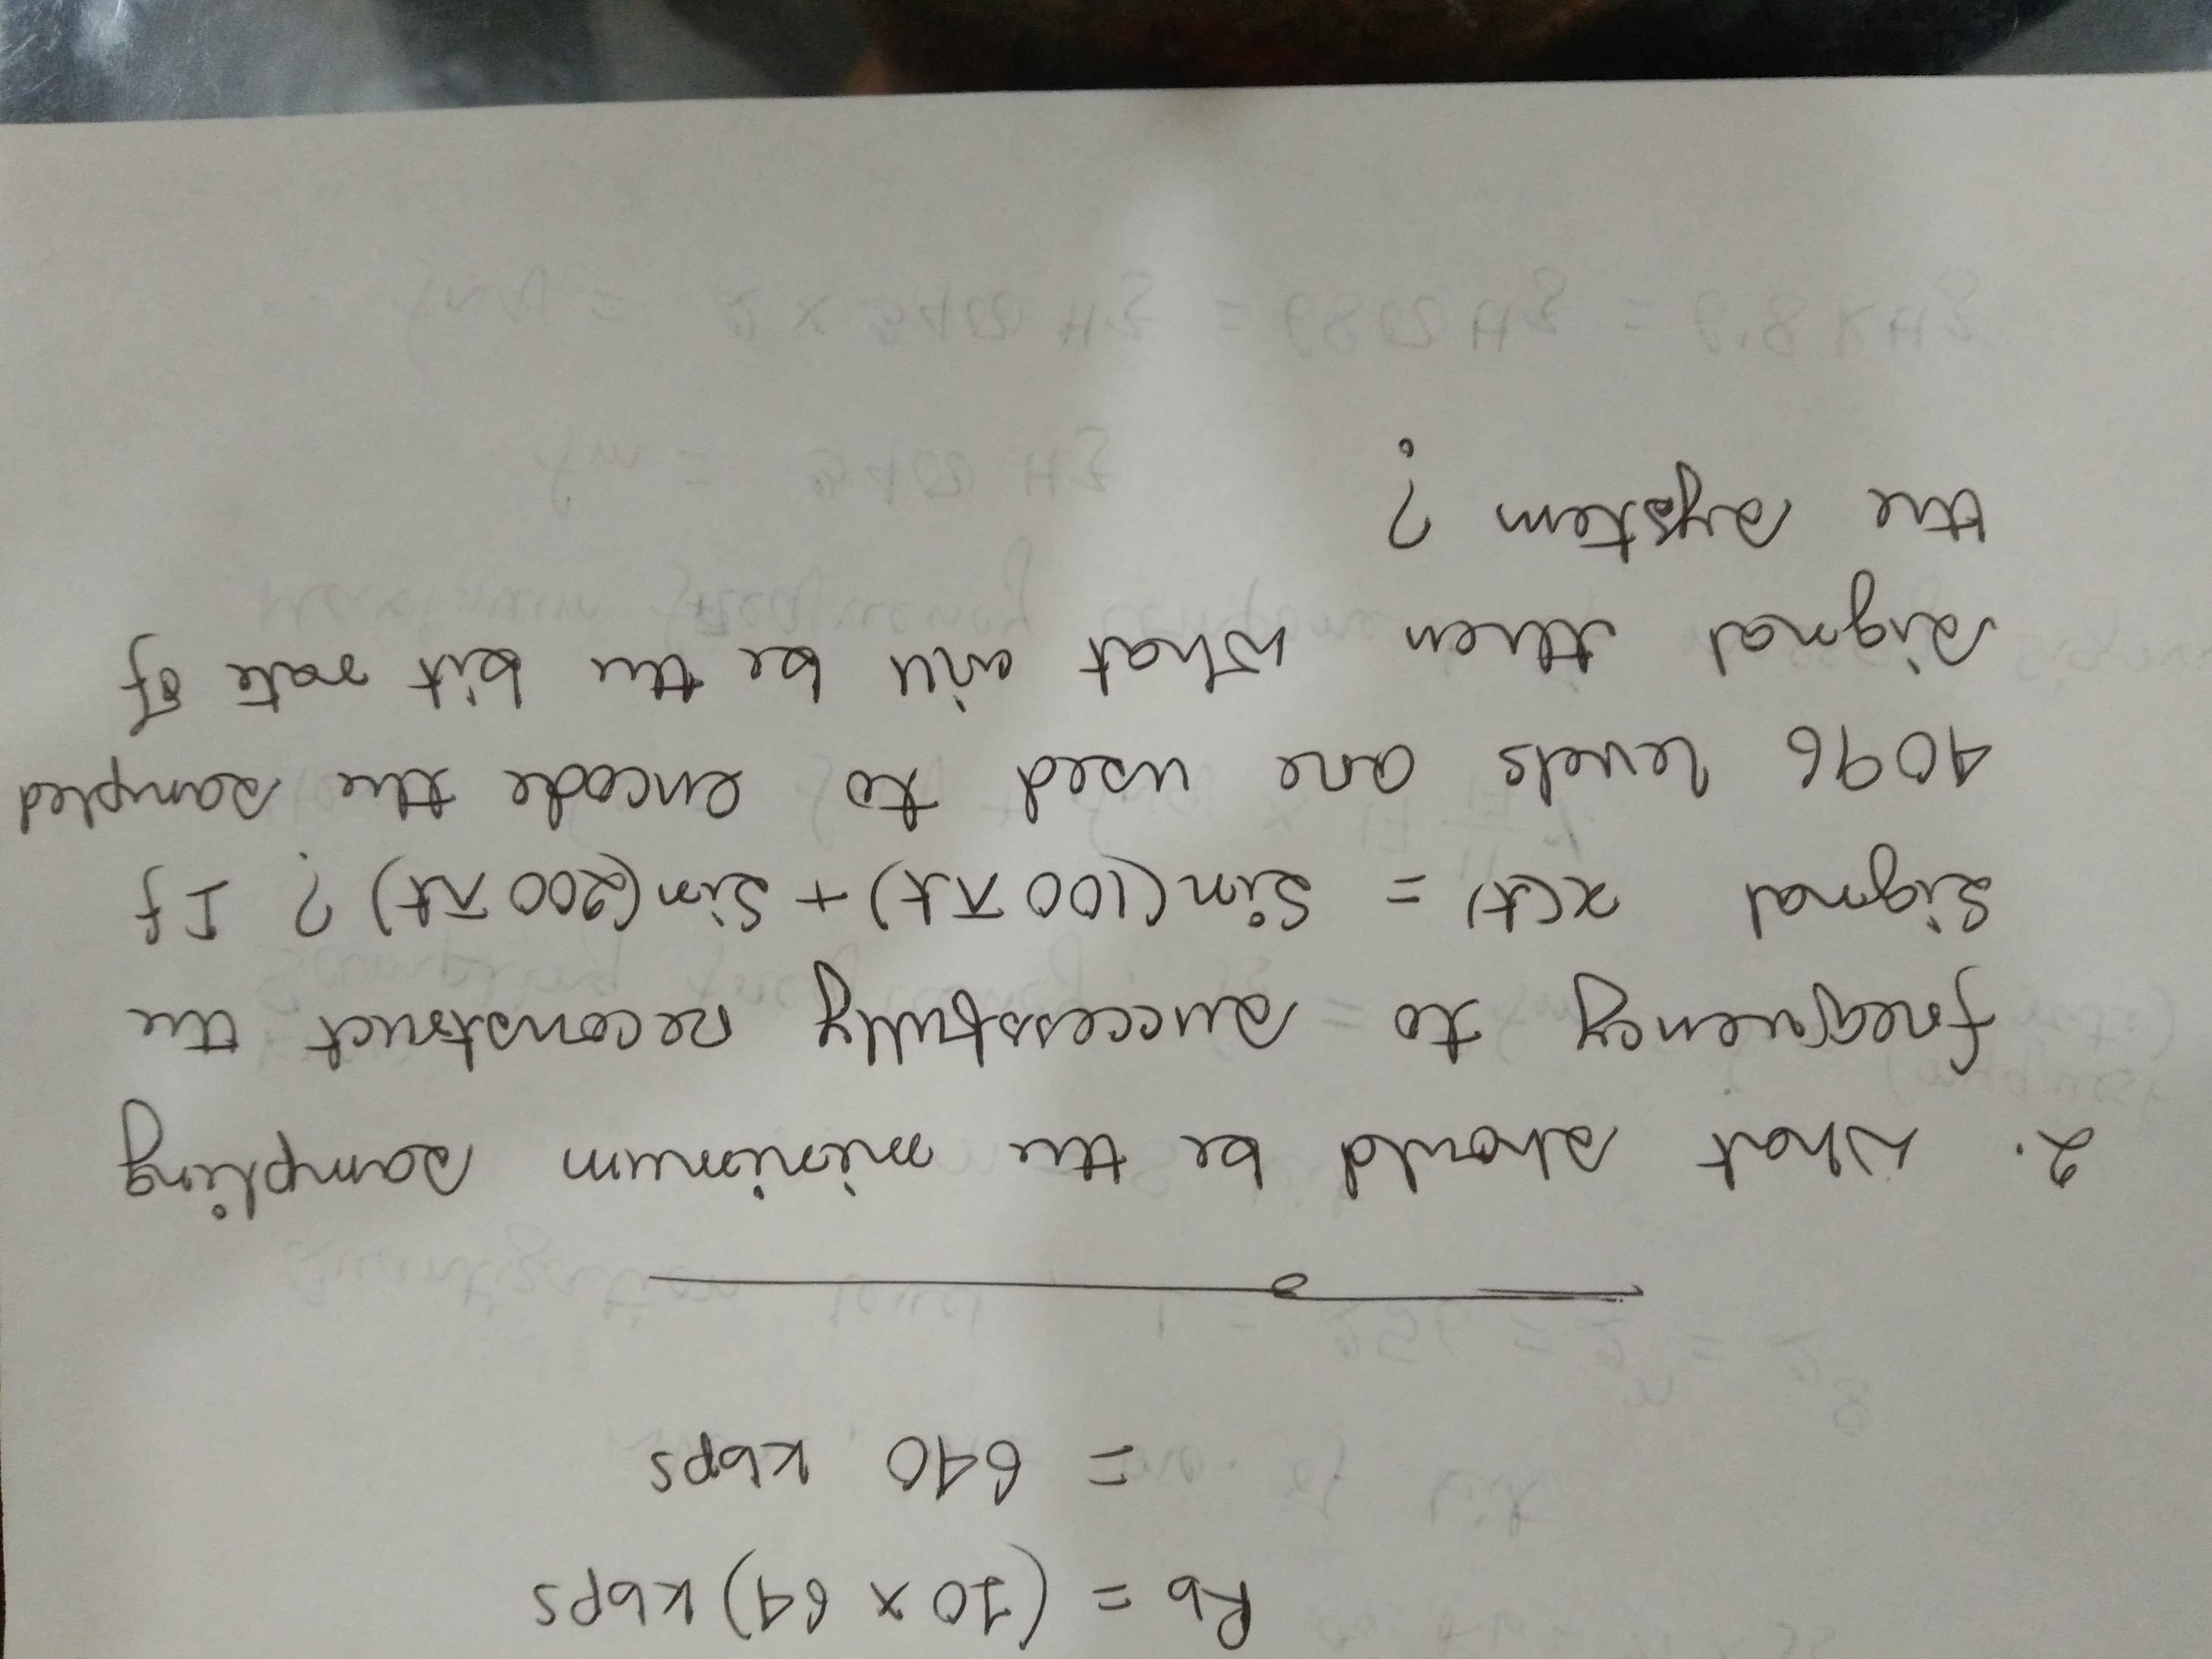 Rb = (10 x 64) Kbps
= 640 Kbps
2. What should be the minimum sampling
frequency to successfully reconstruct the
signal x(t) = Sin(100πt) + Sin(200πt)? If
4096 levels are used to encode the sampled
signal then what will be the bit rate of
the system?